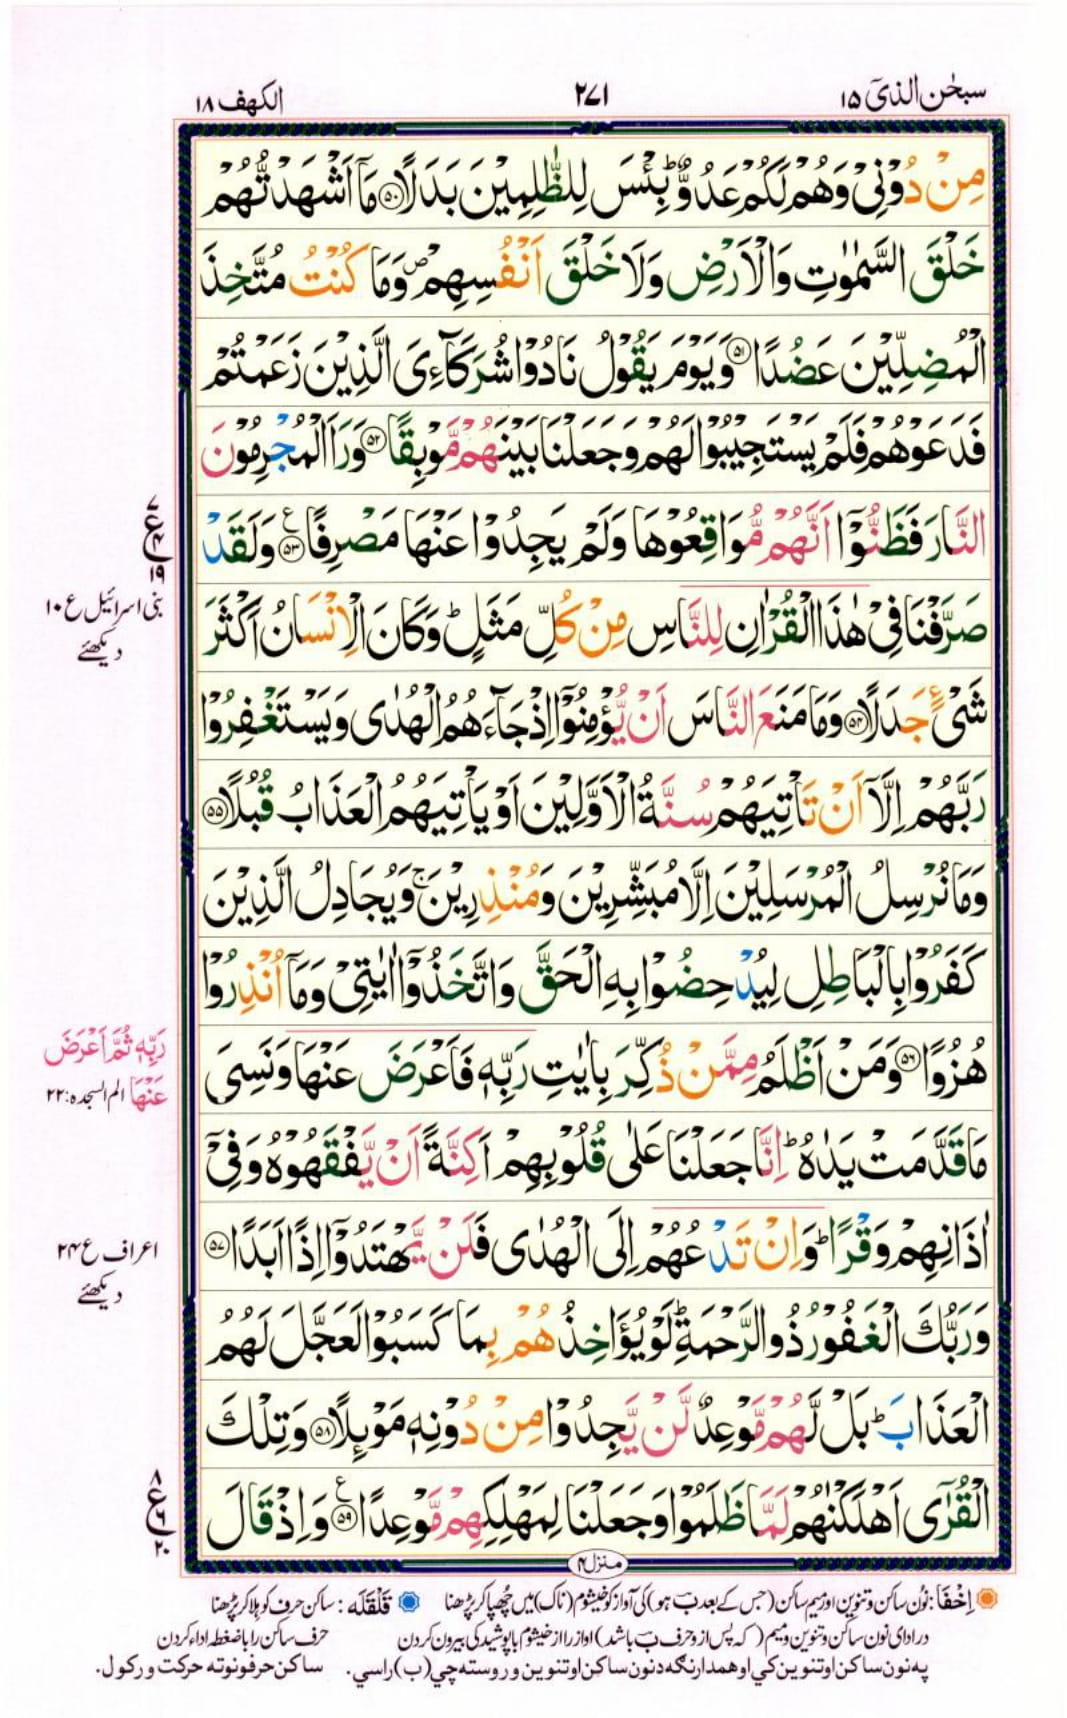 سبحٰن الذیۤ ۱۵
۲۷۱
الکهف ۱۸
مِنْ دُوْنِیْ وَهُمْ لَكُمْ عَدُوٌّ ؕ بِئْسَ لِلظّٰلِمِیْنَ بَدَلًا ۝۵۰ مَاۤ اَشْهَدْتُّهُمْ
خَلْقَ السَّمٰوٰتِ وَالْاَرْضِ وَلَا خَلْقَ اَنْفُسِهِمْ ۪ وَمَا كُنْتُ مُتَّخِذَ
الْمُضِلِّیْنَ عَضُدًا ۝۵۱ وَیَوْمَ یَقُوْلُ نَادُوْا شُرَكَآءِیَ الَّذِیْنَ زَعَمْتُمْ
فَدَعَوْهُمْ فَلَمْ یَسْتَجِیْبُوْا لَهُمْ وَجَعَلْنَا بَیْنَهُمْ مَّوْبِقًا ۝۵۲ وَرَاَ الْمُجْرِمُوْنَ
النَّارَ فَظَنُّوْۤا اَنَّهُمْ مُّوَاقِعُوْهَا وَلَمْ یَجِدُوْا عَنْهَا مَصْرِفًا ۝۵۳ ع وَلَقَدْ
صَرَّفْنَا فِیْ هٰذَا الْقُرْاٰنِ لِلنَّاسِ مِنْ كُلِّ مَثَلٍ ؕ وَكَانَ الْاِنْسَانُ اَكْثَرَ
شَیْءٍ جَدَلًا ۝۵۴ وَمَا مَنَعَ النَّاسَ اَنْ یُّؤْمِنُوْۤا اِذْ جَآءَهُمُ الْهُدٰی وَیَسْتَغْفِرُوْا
رَبَّهُمْ اِلَّاۤ اَنْ تَاْتِیَهُمْ سُنَّةُ الْاَوَّلِیْنَ اَوْ یَاْتِیَهُمُ الْعَذَابُ قُبُلًا ۝۵۵
وَمَا نُرْسِلُ الْمُرْسَلِیْنَ اِلَّا مُبَشِّرِیْنَ وَمُنْذِرِیْنَ ۚ وَیُجَادِلُ الَّذِیْنَ
كَفَرُوْا بِالْبَاطِلِ لِیُدْحِضُوْا بِهِ الْحَقَّ وَاتَّخَذُوْۤا اٰیٰتِیْ وَمَاۤ اُنْذِرُوْا
هُزُوًا ۝۵۶ وَمَنْ اَظْلَمُ مِمَّنْ ذُكِّرَ بِاٰیٰتِ رَبِّهٖ فَاَعْرَضَ عَنْهَا وَنَسِیَ
مَا قَدَّمَتْ یَدٰهُ ؕ اِنَّا جَعَلْنَا عَلٰی قُلُوْبِهِمْ اَكِنَّةً اَنْ یَّفْقَهُوْهُ وَفِیْۤ
اٰذَانِهِمْ وَقْرًا ؕ وَاِنْ تَدْعُهُمْ اِلَی الْهُدٰی فَلَنْ یَّهْتَدُوْۤا اِذًا اَبَدًا ۝۵۷
وَرَبُّكَ الْغَفُوْرُ ذُو الرَّحْمَةِ ؕ لَوْ یُؤَاخِذُهُمْ بِمَا كَسَبُوْا لَعَجَّلَ لَهُمُ
الْعَذَابَ ؕ بَلْ لَّهُمْ مَّوْعِدٌ لَّنْ یَّجِدُوْا مِنْ دُوْنِهٖ مَوْئِلًا ۝۵۸ وَتِلْكَ
الْقُرٰۤی اَهْلَكْنٰهُمْ لَمَّا ظَلَمُوْا وَجَعَلْنَا لِمَهْلِكِهِمْ مَّوْعِدًا ۝۵۹ ع وَاِذْ قَالَ
۷
ع ۴
۱۹
بنی اسرائیل ع ۱۰
دیکھئے
رَبِّهٖ ثُمَّ اَعْرَضَ
عَنْهَا الم السجدہ: ۲۲
اعراف ع ۲۴
دیکھئے
۸
ع ۶
۲۰
منزل ۴
اِخْفَا: نُون ساکن و تنوین اور میم ساکن (جس کے بعد بَ ہو) کی آواز کو خیشوم (ناک) میں چُھپا کر پڑھنا قَلْقَلَه: ساکن حرف کو ہلا کر پڑھنا
در ادای نون ساکن و تنوین و میم (که پس از و حرف بَ باشد) اواز را از خیشوم با پوشیدکی بیرون کردن حرف ساکن را باضغطه اداء کردن
په نون ساکن او تنوین کي او همدارنګه د نون ساکن او تنوین و روسته چي (ب) راسي. ساکن حرفونو ته حرکت ورکول.